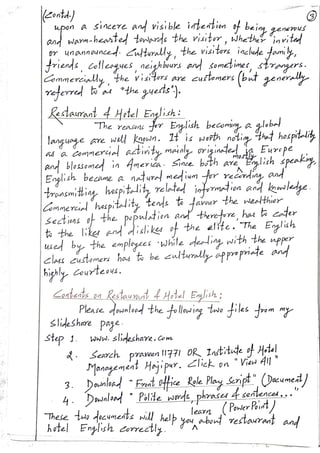 (Contd.) 3
upon a sincere and visible intention of being generous
and warm-hearted towards the visitor, whether invited
or unannounced. Culturally, the visitors include family,
friends, colleagues, neighbours and sometimes, strangers.
Commercially, the visitors are customers (but generally
referred to as "the guests").
Restaurant & Hotel English:
The reasons for English becoming a global
language are well known. It is worth noting that hospitality
as a commercial activity, mainly originated in Europe
and blossomed in America. Since both are mostly English speaking,
English became a natural medium for recording and
transmitting hospitality related information and knowledge.
Commercial hospitality tends to favour the wealthier
sections of the population and therefore, has to cater
to the likes and dislikes of the elite. The English
used by the employees while dealing with the upper
class customers has to be culturally appropriate and
highly courteous.
Contents on Restaurant & Hotel English:
Please download the following two files from my
slideshare page.
Step 1. www.slideshare.com
2. Search praveen11771 OR Institute of Hotel
Management Hajipur. Click on "View All"
3. Download "Front Office Role Play Script" (Document)
4. Download "Polite words, phrases & sentences..."
(PowerPoint)
These two documents will help you learn about restaurant and
hotel English correctly.